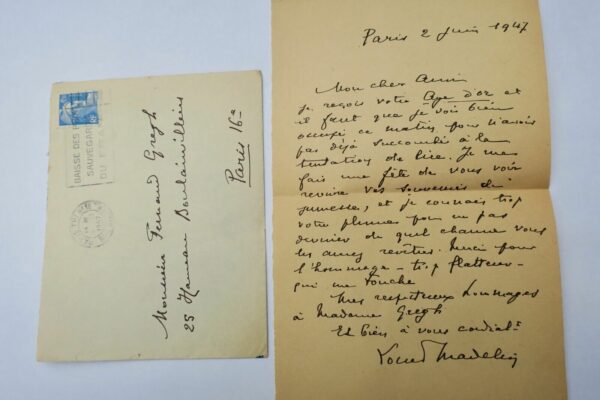 BAISSE DES P
SAUVEGARD
DU F
Monsieur Fernand Gregh
25 Hameau Boulainvilliers
Paris 16e
Paris 2 Juin 1947
Mon cher Ami
Je reçois votre Age d'or et
il faut que je sois bien
occupé ce matin pour n'avoir
pas déjà succombé à la
tentation de lire. Je me
fais une fête de vous voir
revivre vos souvenirs de
jeunesse, et je connais trop
votre plume pour ne pas
deviner de quel charme vous
les aurez revêtus. Merci pour
l'hommage - trop flatteur -
qui me touche
Mes respectueux hommages
à Madame Gregh
Et bien à vous cordialt
Louis Madelin